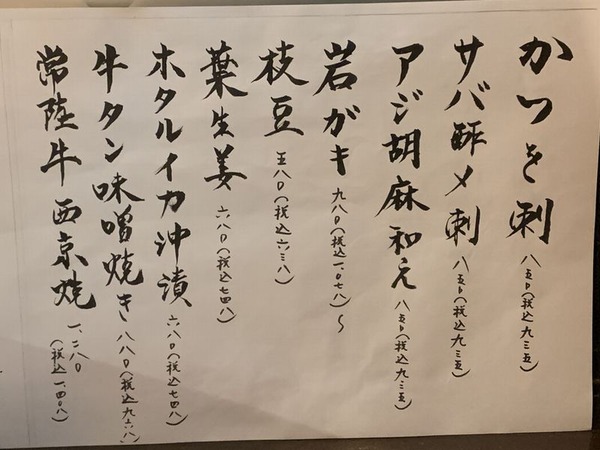 かつを刺 八五〇(税込九三五)
サバ酢〆刺 八五〇(税込九三五)
アジ胡麻和え 八五〇(税込九三五)
岩がキ 九八〇(税込一、〇七八)〜
枝豆 五八〇(税込六三八)
葉生姜 六八〇(税込七四八)
ホタルイカ沖漬 六八〇(税込七四八)
牛タン味噌焼き 八八〇(税込九六八)
常陸牛西京焼 一、二八〇(税込一、四〇八)